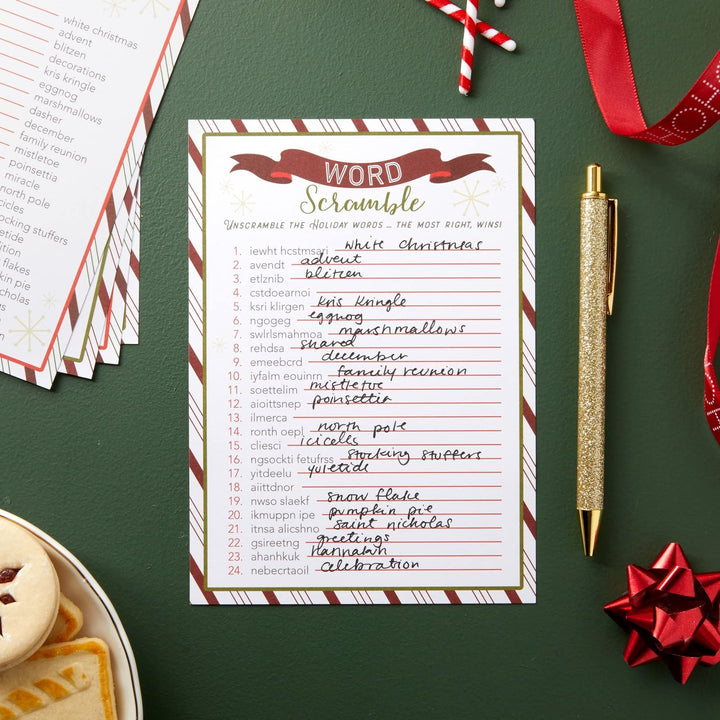 white christmas
advent
blitzen
decorations
kris kringle
eggnog
marshmallows
dasher
december
family reunion
mistletoe
poinsettia
miracle
north pole
ocking stuffers
dition
flakes
kin pie
icholas
WORD
Scramble
UNSCRAMBLE THE HOLIDAY WORDS ... THE MOST RIGHT, WINS!
1. iewht hcstmsari white christmas
2. avendt advent
3. etlznib blitzen
4. cstdoearnoi
5. ksri klirgen kris kringle
6. ngogeg eggnog
7. swlrlsmahmoa marshmallows
8. rehdsa shared
9. emeebcrd december
10. iyfalm eouinrn family reunion
11. soettelim mistletoe
12. aioittsnep poinsettia
13. ilmerca
14. ronth oepl north pole
15. cliesci icicles
16. ngsockti fetufrss stocking stuffers
17. yitdeelu yuletide
18. aiittdnor
19. nwso slaekf snow flake
20. ikmuppn ipe pumpkin pie
21. itnsa alicshno saint nicholas
22. gsireetng greetings
23. ahanhkuk
24. nebecrtaoil celebration
HO HO HO